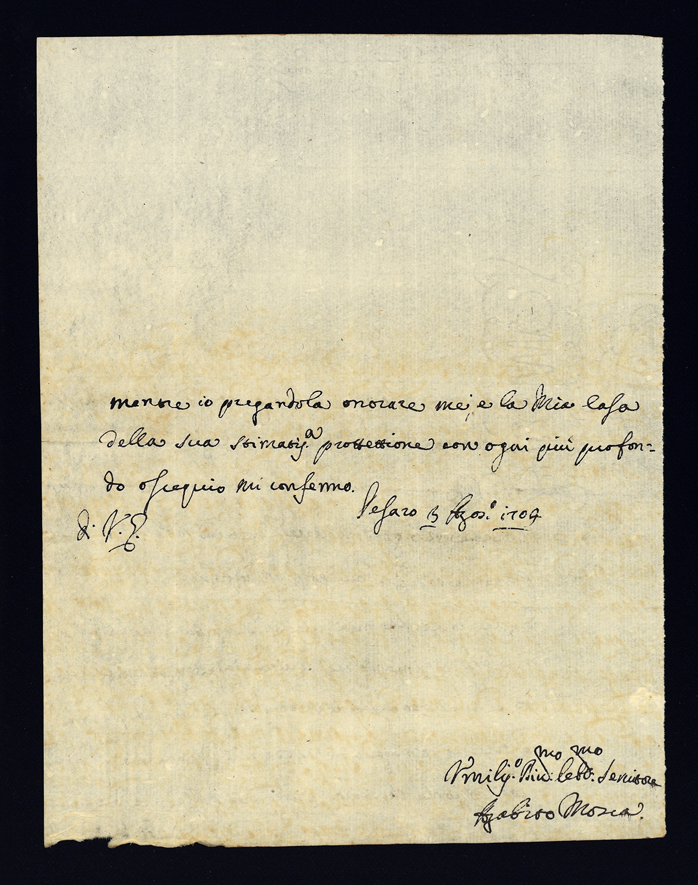 mentre io pregandola onorare me, e la Mia Casa
della sua stimatis.ª protettione con ogni più profon=
do ossequio mi confermo.
Pesaro 3 Agos.º 1704
D. V. E.
Vmilis.º Diu.mo Obb.mo Seruitore
Mosca.